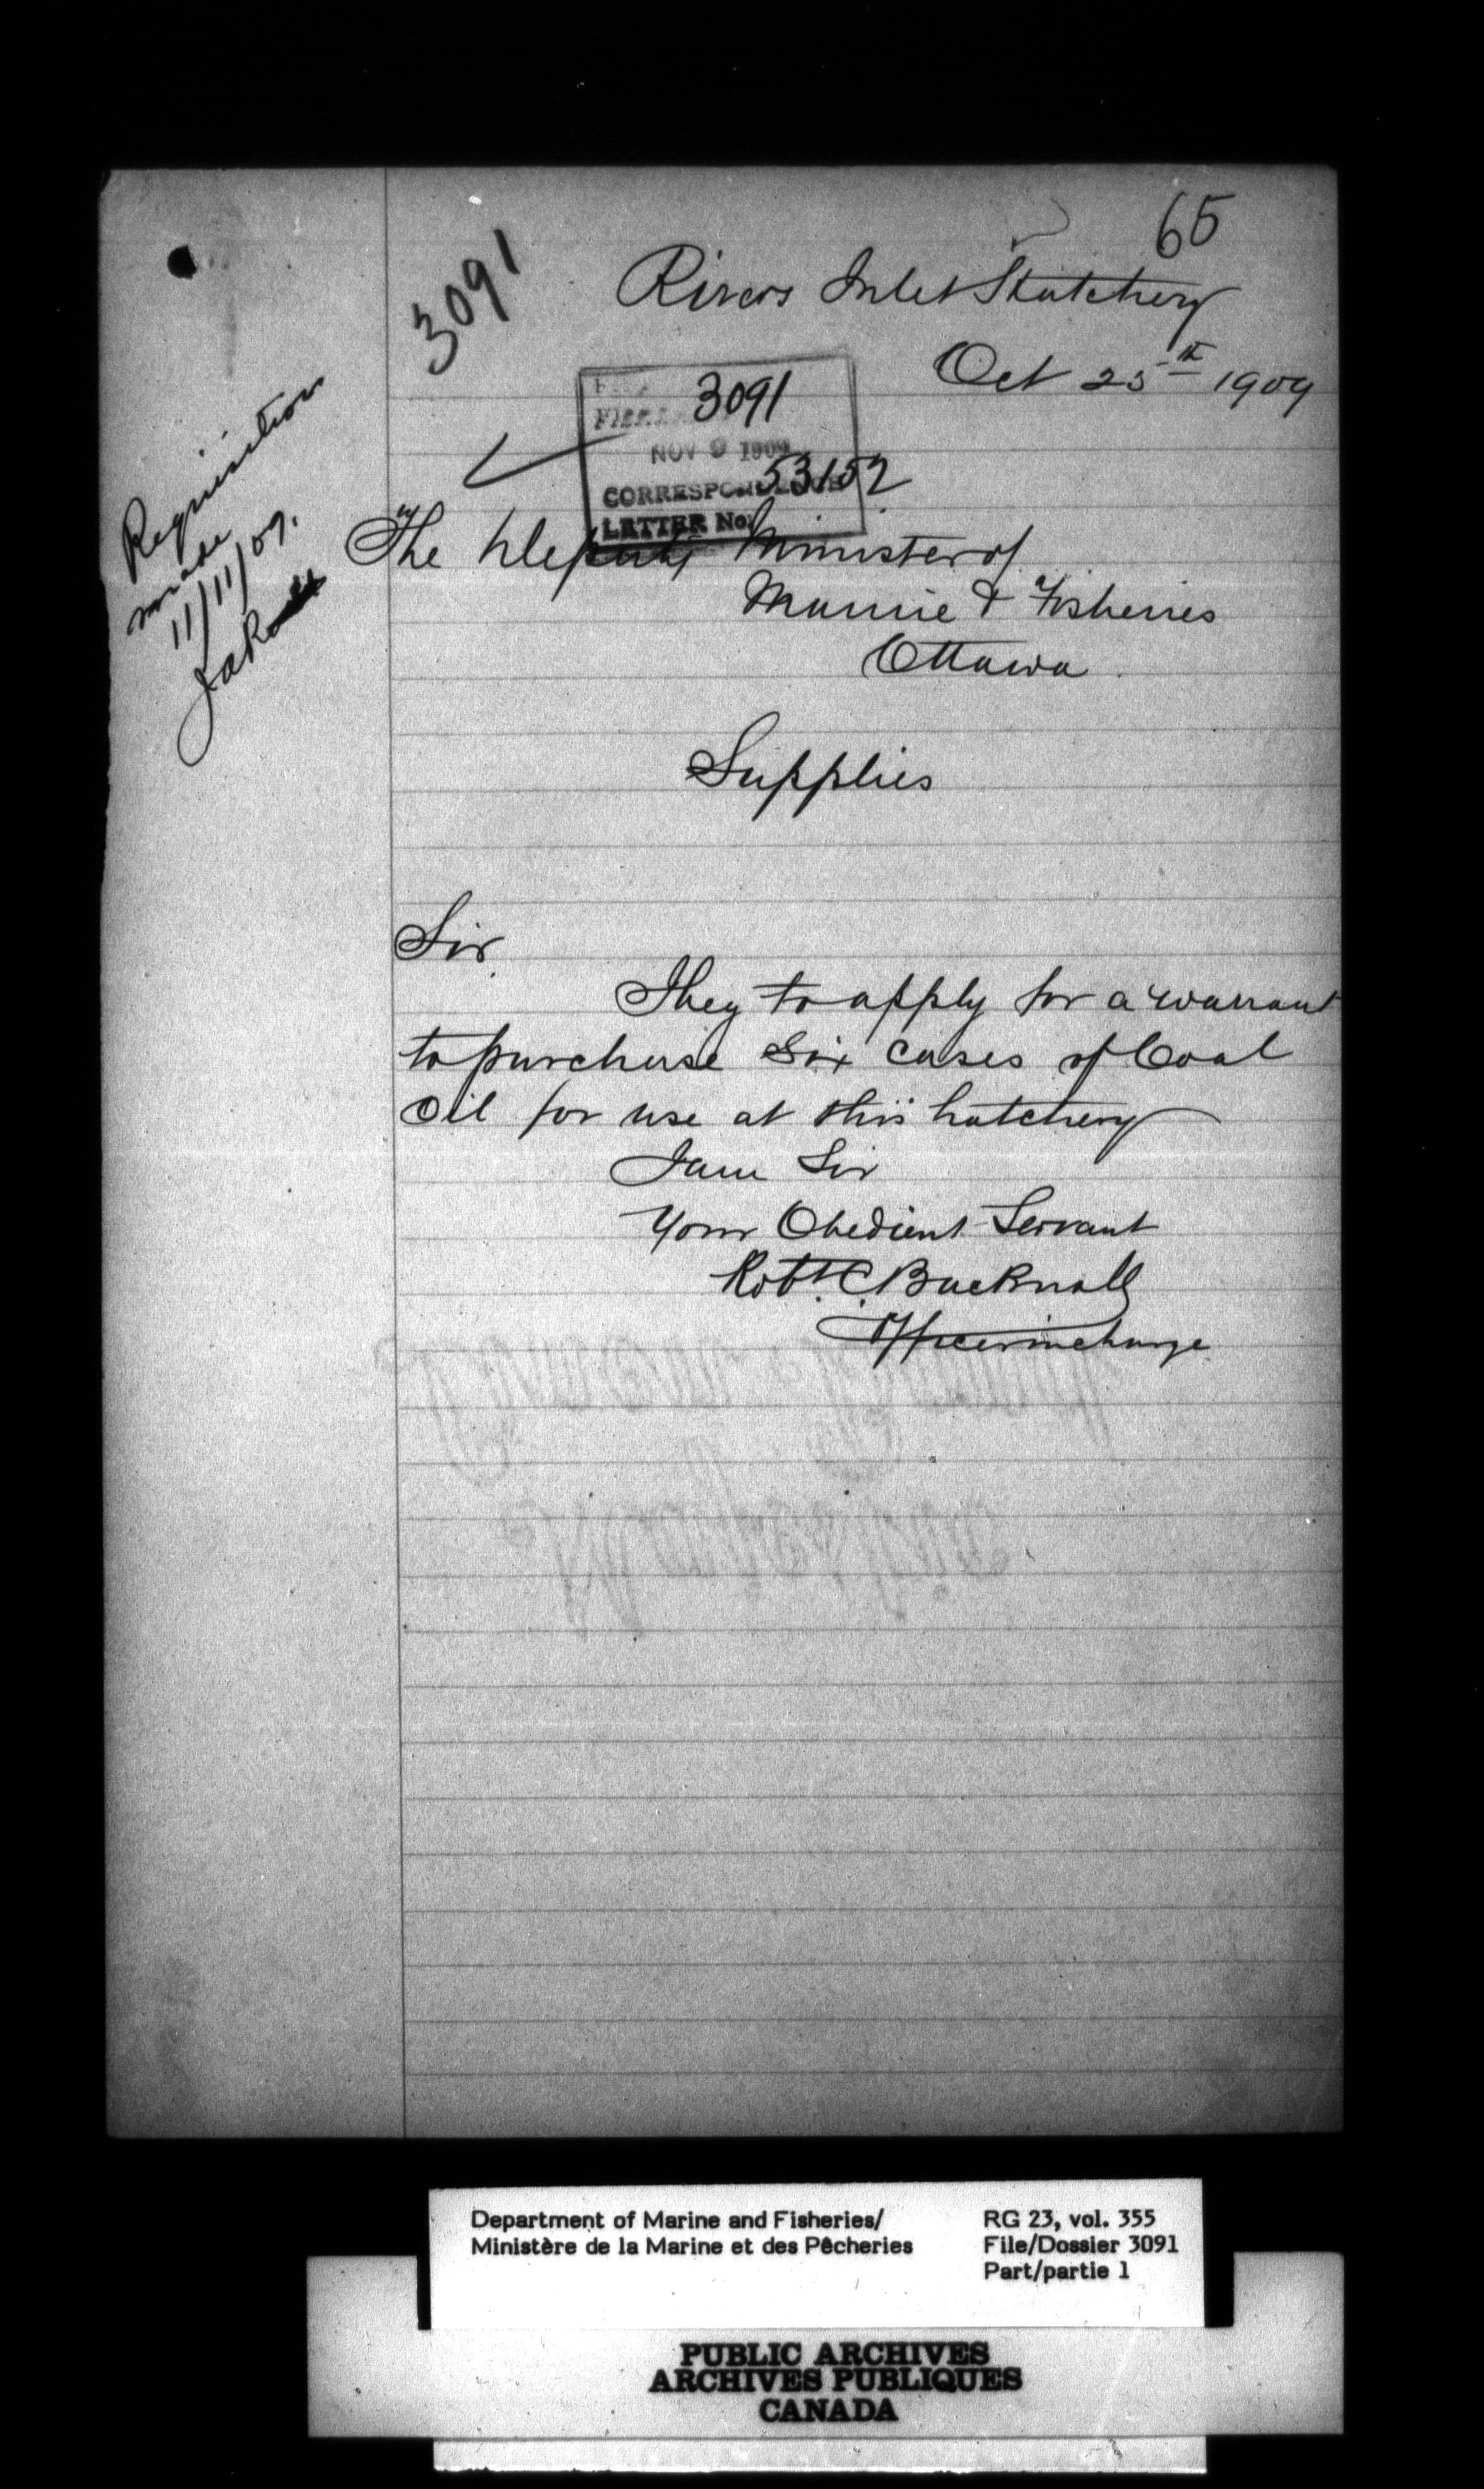 65
3091
Rivers Inlet Hatchery
Oct 25th 1909
3091
NOV 9 1909
53152
CORRESPONDENCE
LETTER No.
Requisition
made
11/11/09.
The Deputy Minister of
Marine & Fisheries
Ottawa
Supplies
Sir
I beg to apply for a warrant
to purchase six cases of Coal
Oil for use at this hatchery
I am Sir
Your Obedient Servant
Robt. C. Bucknall
Officer in charge
Department of Marine and Fisheries/
Ministère de la Marine et des Pêcheries
RG 23, vol. 355
File/Dossier 3091
Part/partie 1
PUBLIC ARCHIVES
ARCHIVES PUBLIQUES
CANADA